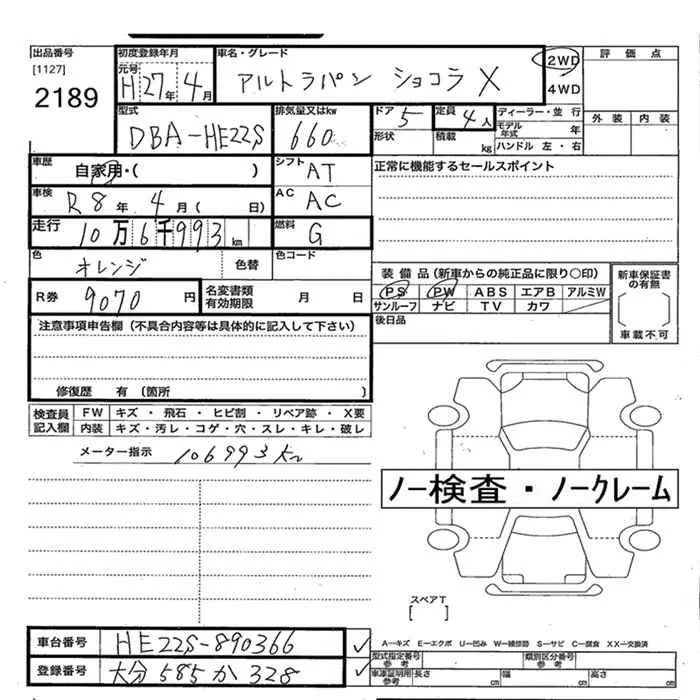 出品番号 初度登録年月 車名・グレード 2WD 評価点
[1127] 元号 4WD
2189 H 27年 4月 アルトラパン ショコラ X
型式 排気量又はkw ドア 定員 ディーラー・並行 外装 内装
DBA-HE22S 660 5 4人 モデル年式 年
形状 積載 kg ハンドル 左・右
車歴 自家用・( ) シフト AT 正常に機能するセールスポイント
車検 R8年 4月( 日) AC AC
走行 10万6千993km 燃料 G
色 オレンジ 色替 色コード
装備品(新車からの純正品に限り○印) 新車保証書の有無
R券 9070円 名変書類有効期限 月 日 PS PW ABS エアB アルミW
サンルーフ ナビ TV カワ
注意事項申告欄(不具合内容等は具体的に記入して下さい) 後日品 車載不可
修復歴 有(箇所 )
検査員記入欄 FW キズ・飛石・ヒビ割・リペア跡・X要
内装 キズ・汚レ・コゲ・穴・スレ・キレ・破レ
メーター指示 106993km
ノー検査・ノークレーム
スペアT
[ ]
車台番号 HE22S-890366 ✓
A—キズ E—エクボ U—凹み W—補修跡 S—サビ C—腐食 XX—交換済
型式指定番号参考 類別区分番号参考
登録番号 大分 585 か 328 ✓ 車庫証明用参考 長さ cm 幅 cm 高さ cm